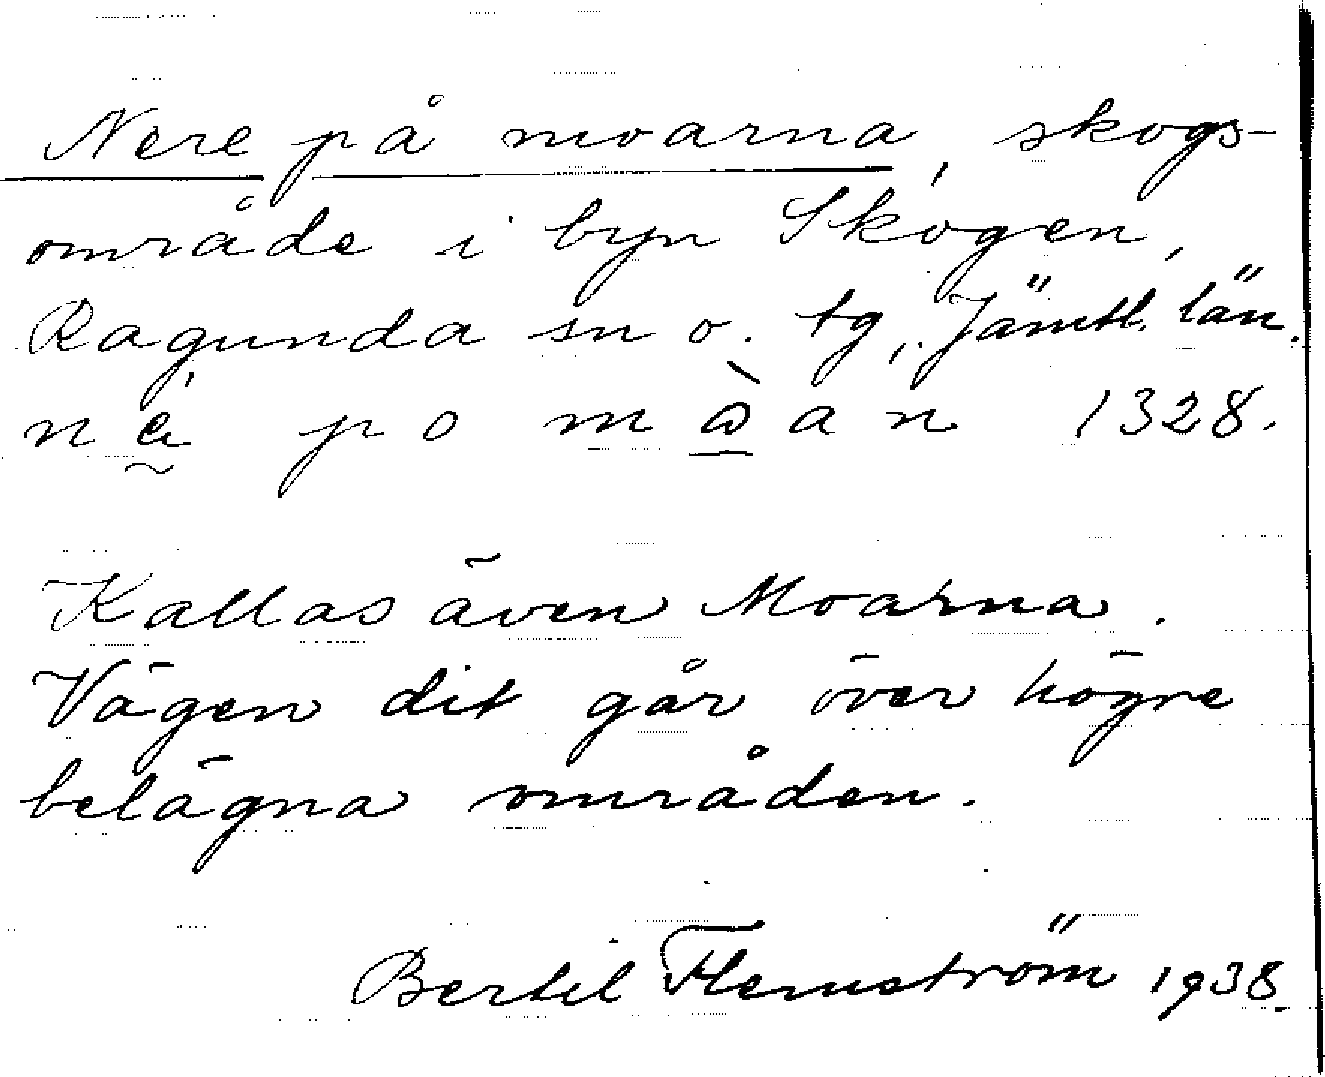 Nere på moarna, skogs-
område i byn Skogen,
Ragunda sn o. tg, Jämtl. län.
po 1328.
Kallas även Moarna.
Vägen dit går över högre
belägna områden.
Bertil Flemström 1938.